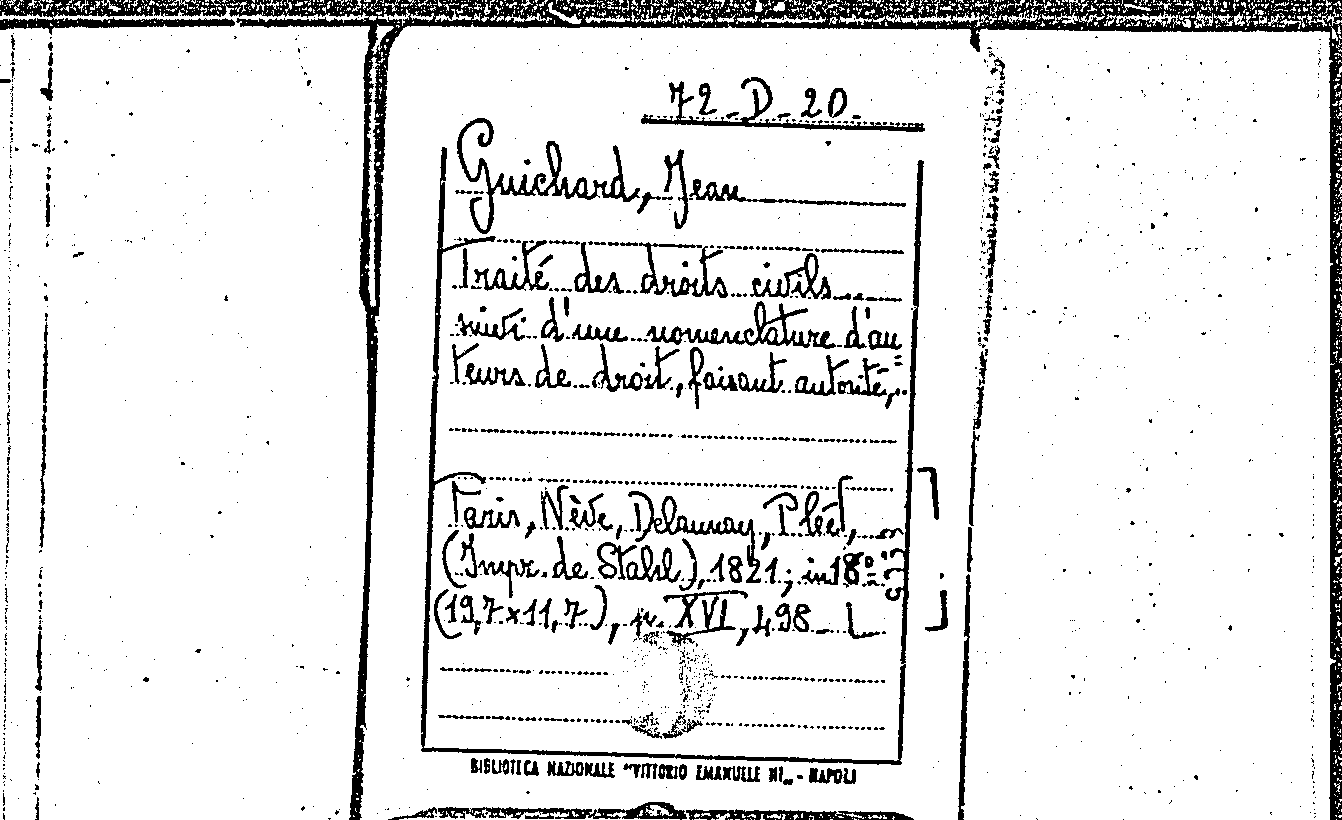 72-D-20.
Guichard, Jean
Traité des droits civils...
suivi d'une nomenclature d'au=
teurs de droit, faisant autorité,..
Paris, Nève, Delaunay,
(Impr. de Stahl), 1821; in 18º
(19,7x11,7), p. XVI, 498
BIBLIOTECA NAZIONALE "VITTORIO EMANUELE III„ - NAPOLI